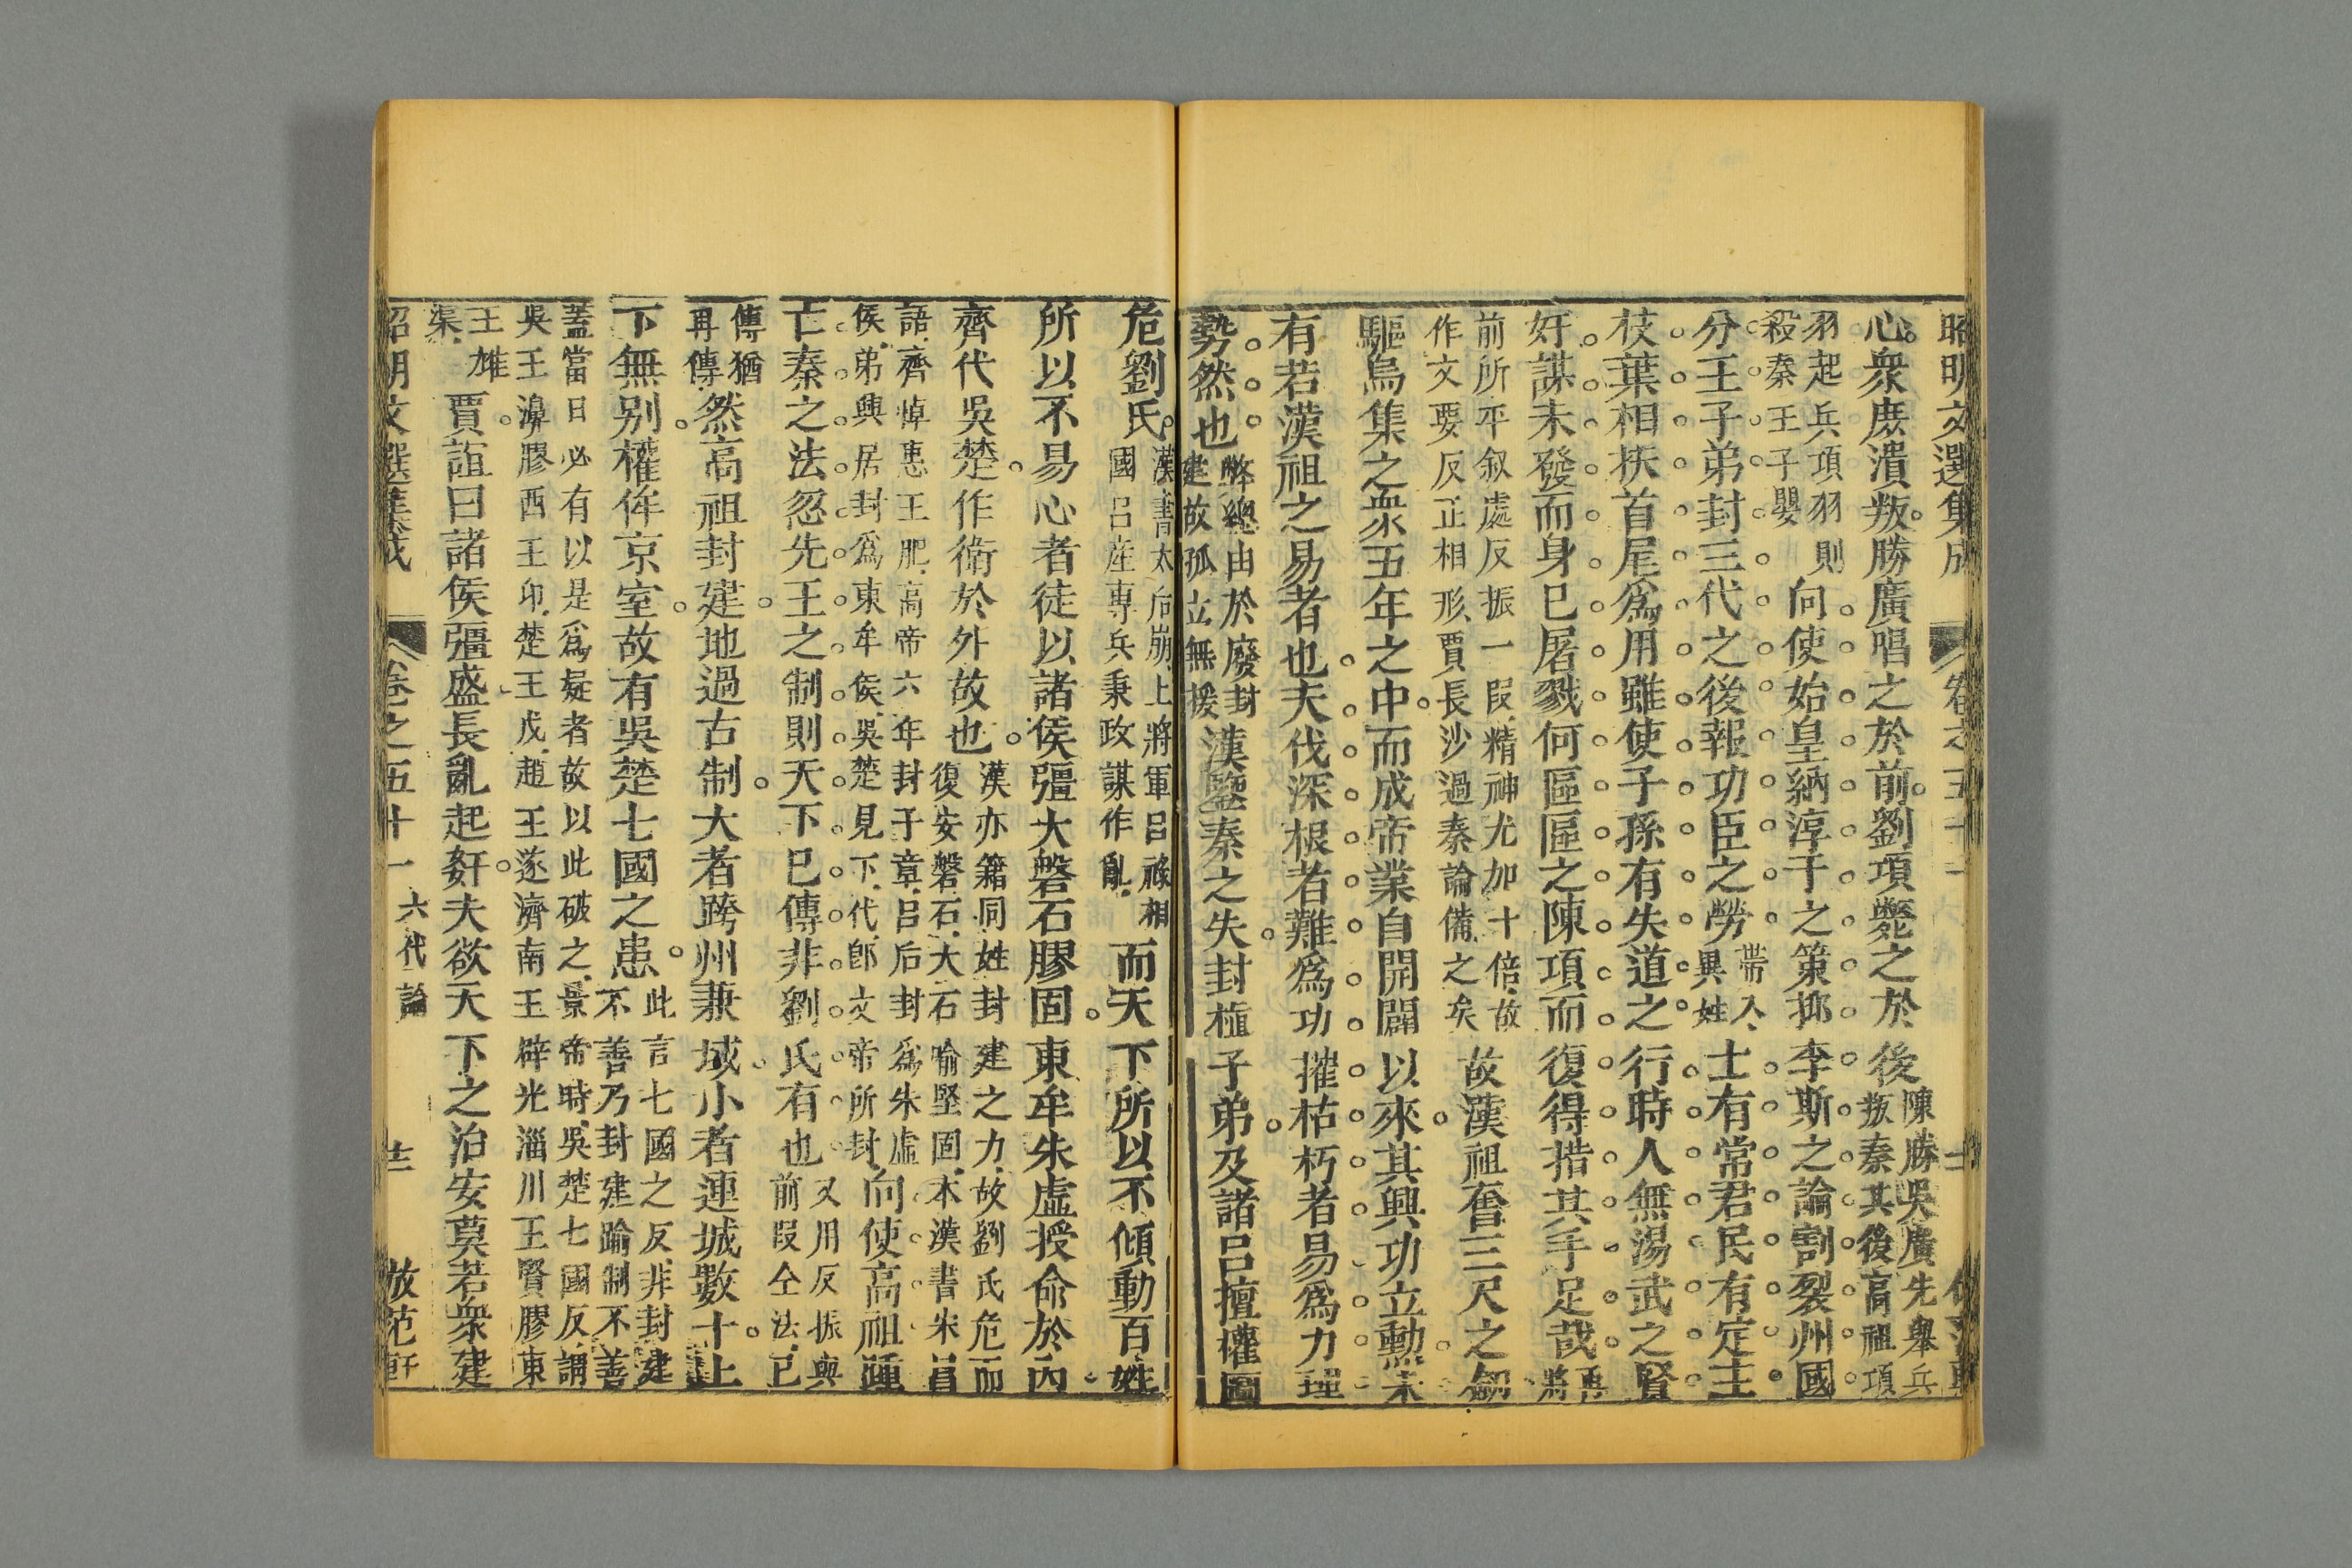 昭明文選集成 卷之五十一
心衆庶潰叛勝廣唱之於前劉項斃之於後陳勝吳廣先舉兵叛秦其後高祖項
羽起兵項羽則殺秦王子嬰向使始皇納淳于之策抑李斯之論割裂州國
分王子弟封三代之後報功臣之勞帶入異姓士有常君民有定主
枝葉相扶首尾爲用雖使子孫有失道之行時人無湯武之賢
奸謀未發而身已屠戮何區區之陳項而復得措其手足哉再將
前所平叙處反振一段精神尤加十倍故作文要反正相形賈長沙過秦論備之矣故漢祖奮三尺之劒
驅烏集之衆五年之中而成帝業自開闢以來其興功立勲未
有若漢祖之易者也夫伐深根者難爲功摧枯朽者易爲力理
勢然也弊總由於廢封建故孤立無援漢鑒秦之失封植子弟及諸呂擅權圖
危劉氏漢書太后崩上將軍呂祿相國呂產專兵秉政謀作亂而天下所以不傾動百姓
所以不易心者徒以諸侯彊大磐石膠固東牟朱虛授命於內
齊代吳楚作衛於外故也漢亦籍同姓封建之力故劉氏危而復安磐石大石喻堅固本漢書宋昌
語齊悼惠王肥高帝六年封子章呂后封爲朱虛侯弟興居封爲東牟侯吳楚見下代郎文帝所封向使高祖踵
亡秦之法忽先王之制則天下已傳非劉氏有也又用反振與前段仝法已
傳猶再傳然高祖封建地過古制大者跨州兼域小者連城數十上
下無别權侔京室故有吳楚七國之患此言七國之反非封建不善乃封建踰制不善
蓋當日必有以是爲疑者故以此破之景帝時吳楚七國反謂吳王濞膠西王卬楚王戊趙王遂濟南王辟光淄川王賢膠東
王雄渠賈誼曰諸侯彊盛長亂起奸夫欲天下之治安莫若衆建
昭明文選集成 卷之五十一 六代論 十二 倣范軒